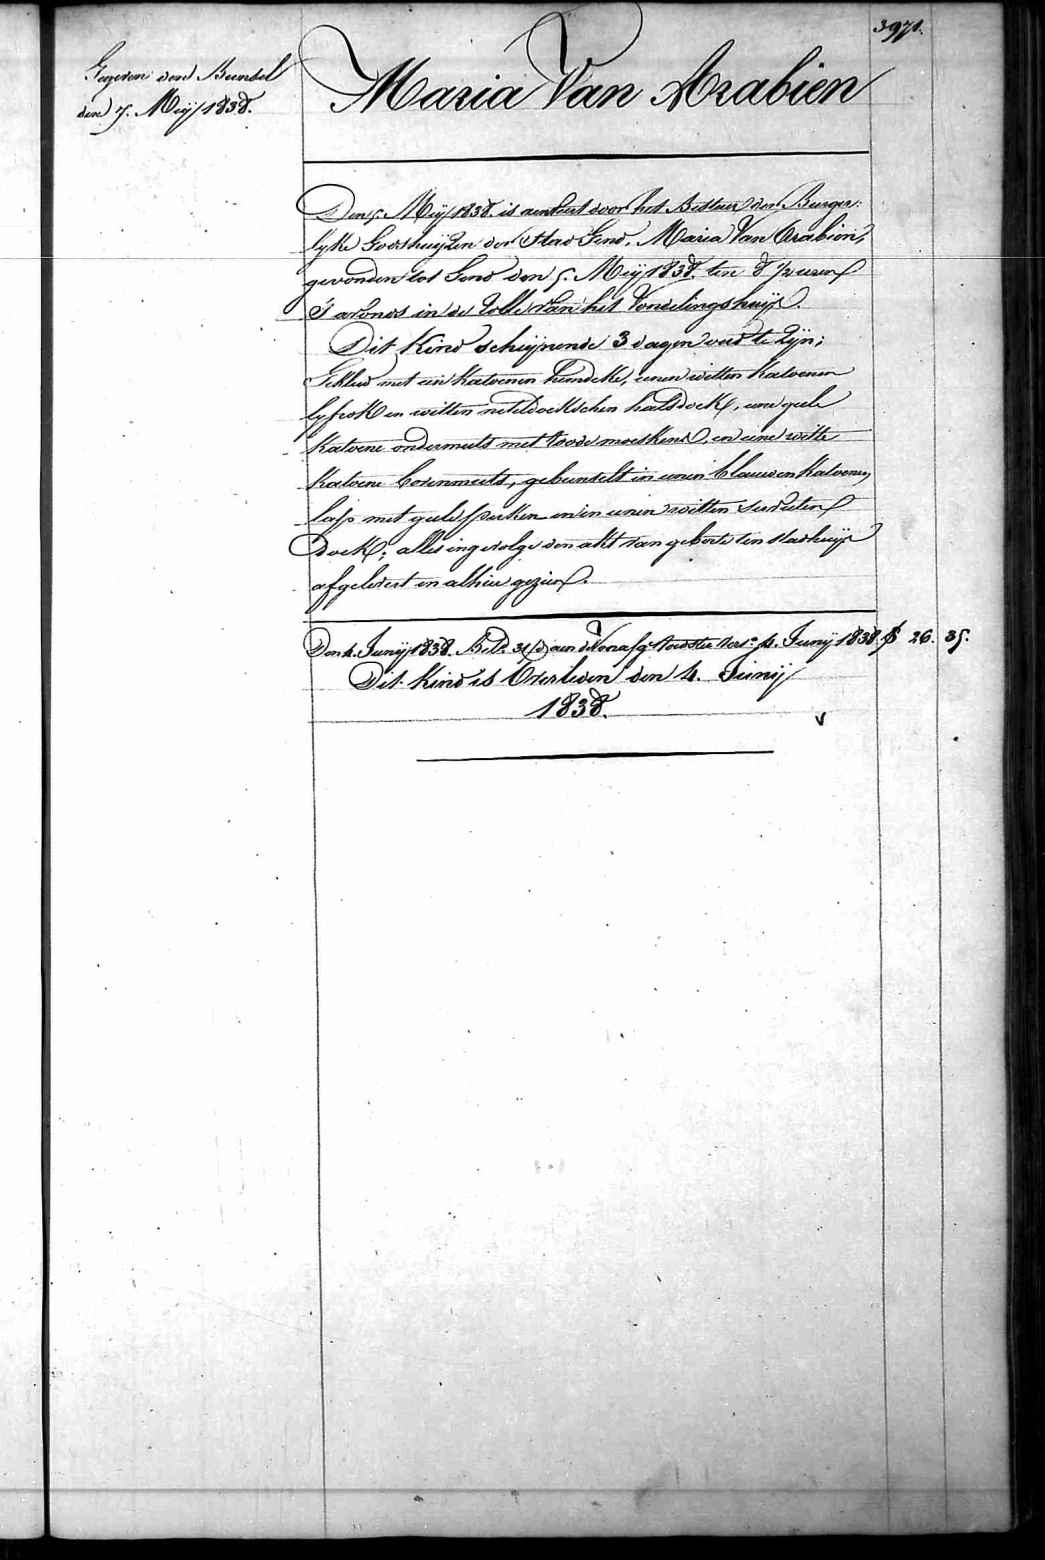 3971.
Gegeven den Bundel
den 7. Meij 1838.
Maria Van Arabien
Den 5. Meij 1838. is aenveert door het Bestuur der Burger:
lyke Godshuijzen der Stad Gend, Maria Van Arabien,
gevonden tot Gend den 5. Meij 1838. ten 8 1/2 uren
S'avonds in de Rolle van het Vondelingshuijs.
Dit Kind schijnende 3 dagen oud te zijn;
Gekleed met een Katoenen hemdeke, eenen witten Katoenen
lyfrok en witten neteldoekschen halsdoek, eene geele
Katoene ondermuts met roode moeskens, en eene witte
Katoene bovenmuts, gebundelt in eenen blauwen Katoenen
lap met geele perken en in eenen witten servieten
doek; alles ingevolge den akt van geboorte ten stadhuijse
afgelevert en alhier gezien.
Den 4. Junij 1838. Bet. 31 d aen de Voorafg. Voedster tot 4. Junij 1838 26. 35.
Dit Kind is Overleden den 4. Junij
1838.